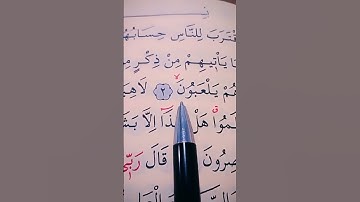 قْتَرَبَ لِلنَّاسِ حِسَابُهُ
ا يَأْتِيهِمْ مِنْ ذِكْرٍ مِ
هُمْ يَلْعَبُونَ ﴿٢﴾ لَاهِيَ
مُوا هَلْ هٰذَا اِلَّا بَشَ
صِرُونَ قَالَ رَبِّي